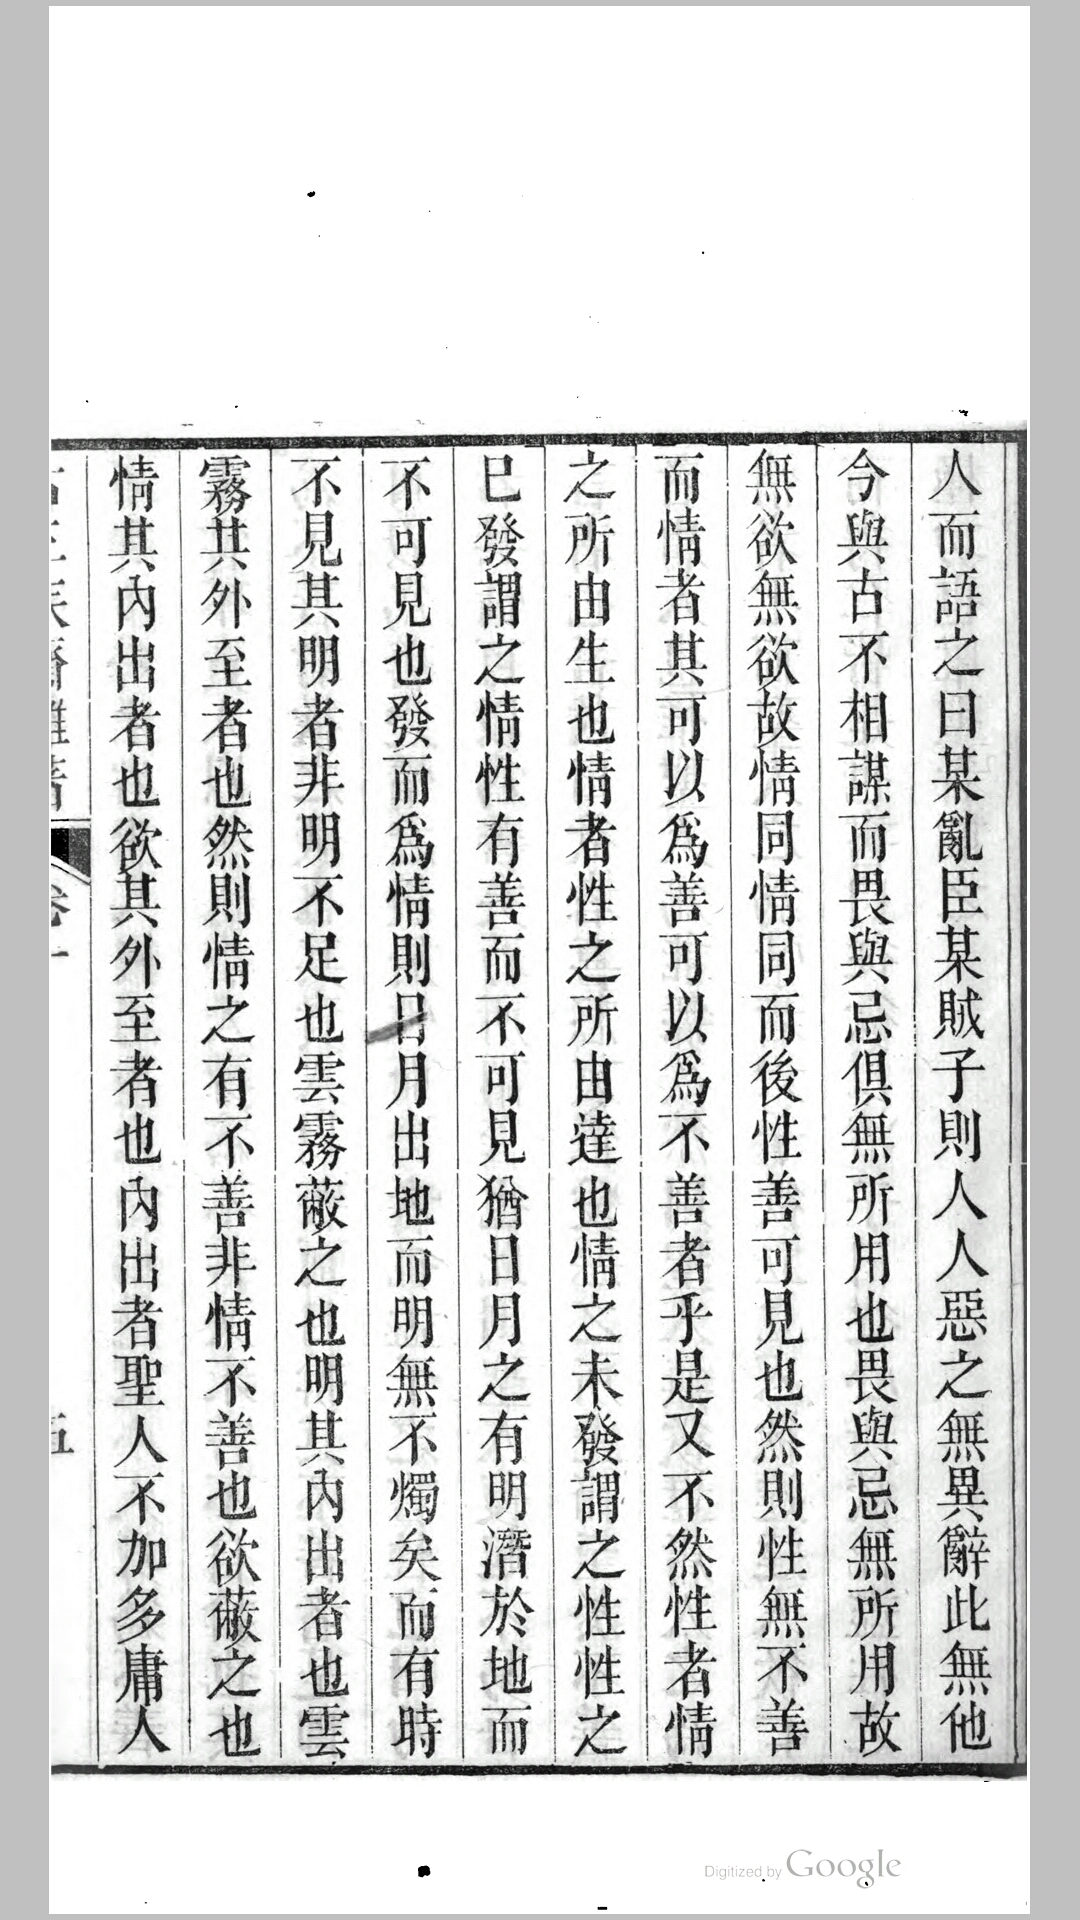 人而語之曰某亂臣某賊子則人人惡之無異辭此無他
今與古不相謀而畏與忌俱無所用也畏與忌無所用故
無欲無欲故情同情同而後性善可見也然則性無不善
而情者其可以爲善可以爲不善者乎是又不然性者情
之所由生也情者性之所由達也情之未發謂之性性之
已發謂之情性有善而不可見猶日月之有明潛於地而
不可見也發而爲情則日月出地而明無不燭矣而有時
不見其明者非明不足也雲霧蔽之也明其內出者也雲
霧其外至者也然則情之有不善非情不善也欲蔽之也
情其內出者也欲其外至者也內出者聖人不加多庸人
Digitized by Google